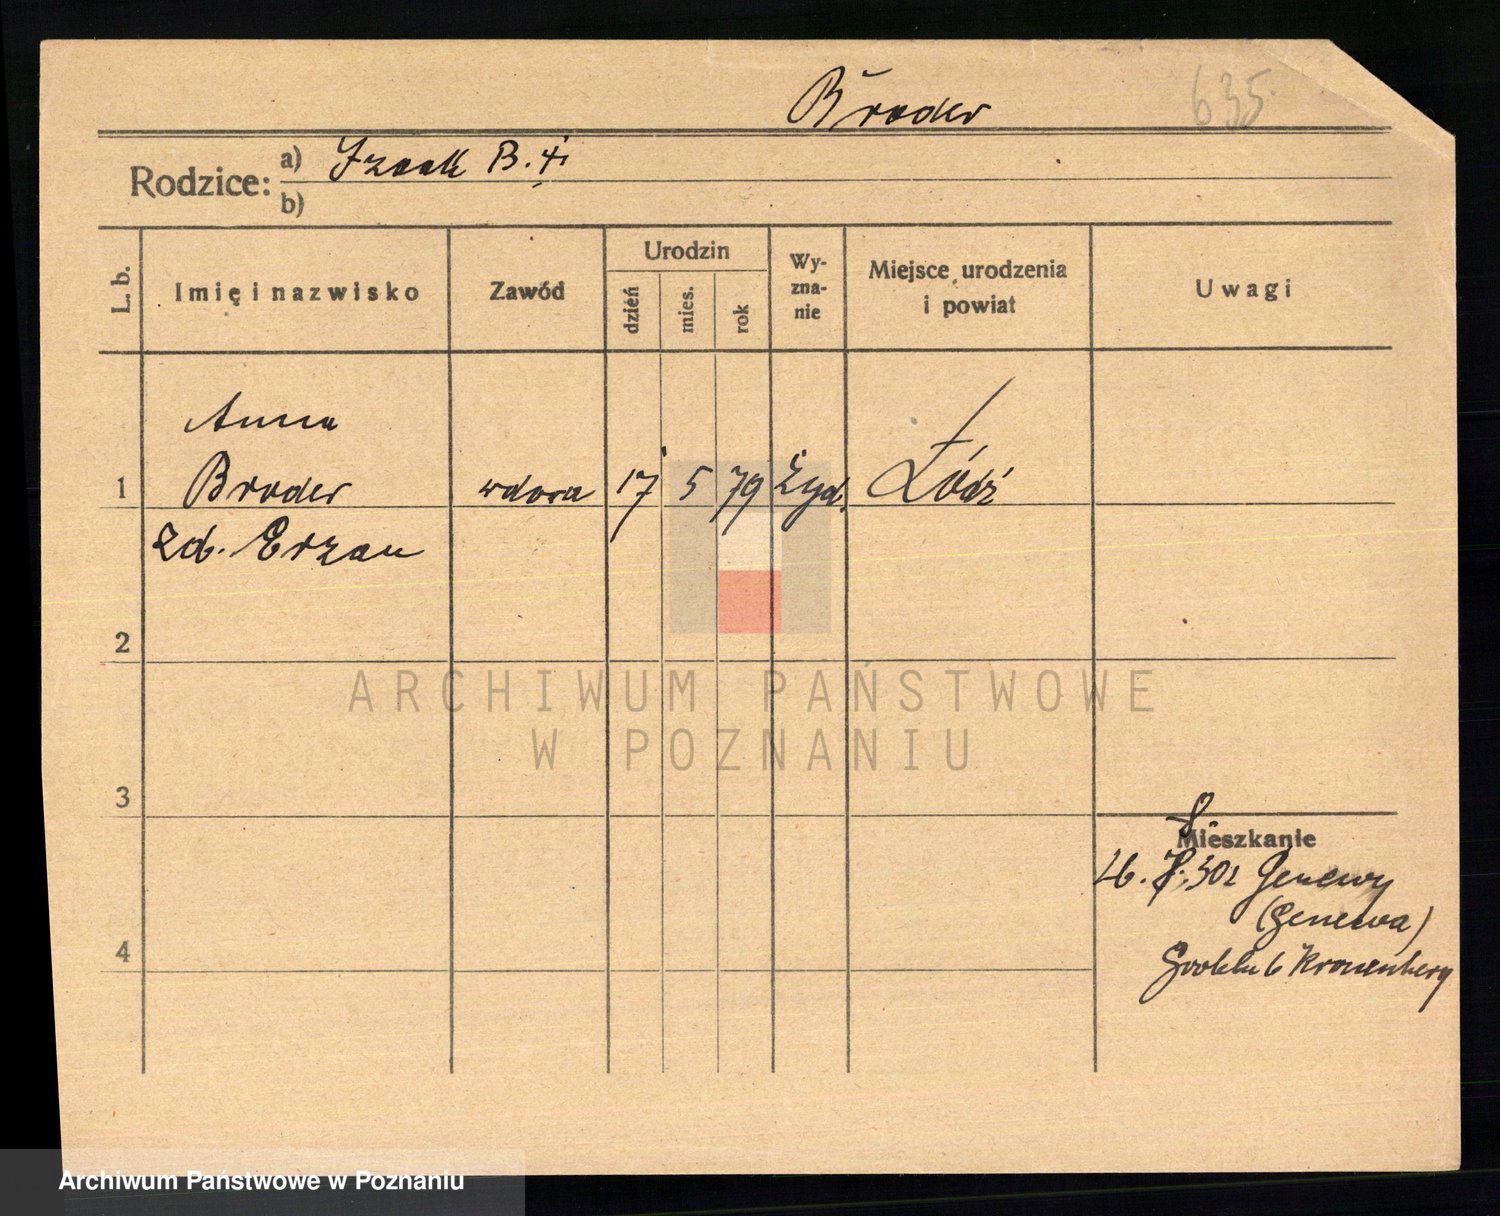 Broder
635
Rodzice: a) Izaak B. †
b)
L. b. Imię i nazwisko Zawód Urodzin dzień mies. rok Wy-zna-nie Miejsce urodzenia i powiat Uwagi
Anna
1 Broder wdowa 17 5 79 Żyd. Łódź
zd. Erzan
2
ARCHIWUM PAŃSTWOWE
W POZNANIU
3
Mieszkanie
30r Genewy
(Genewa)
6 Kronenberg
4
Archiwum Państwowe w Poznaniu